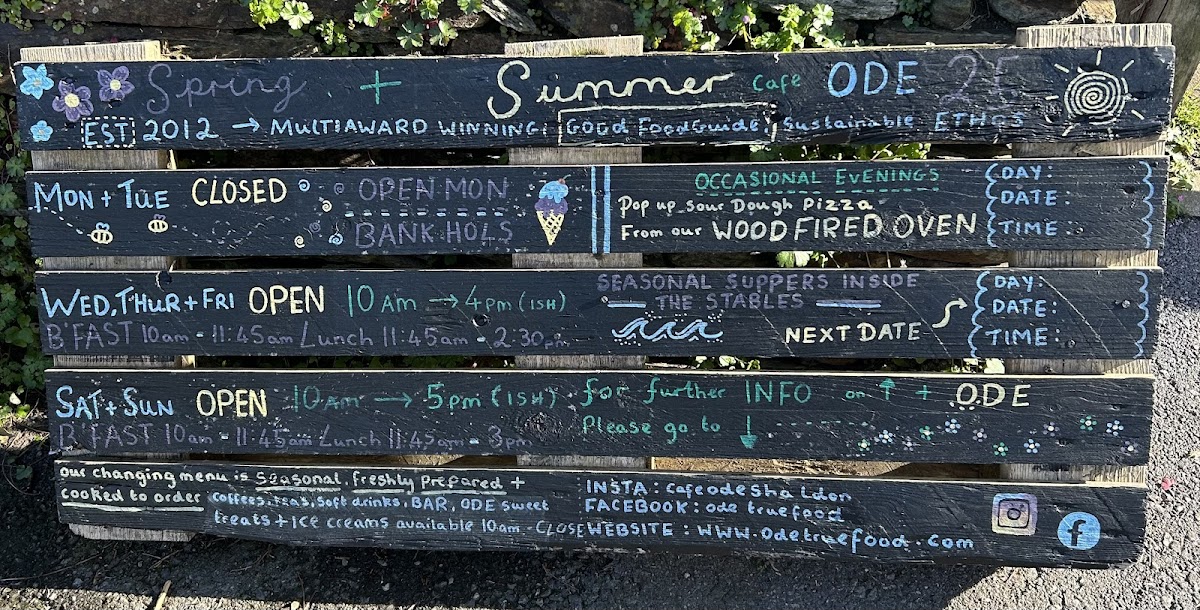 Spring + Summer Cafe ODE 25
EST 2012 → MULTIAWARD WINNING: Good Food Guide, Sustainable ETHOS
MON + TUE CLOSED
OPEN MON
BANK HOLS
OCCASIONAL EVENINGS
Pop up Sour Dough Pizza
From our WOOD FIRED OVEN
DAY:
DATE:
TIME:
WED, THUR + FRI OPEN 10am → 4pm (ISH)
B'FAST 10am - 11:45am Lunch 11:45am - 2:30pm
SEASONAL SUPPERS INSIDE
THE STABLES
NEXT DATE
DAY:
DATE:
TIME:
SAT + SUN OPEN 10am → 5pm (ISH)
B'FAST 10am - 11:45am Lunch 11:45am - 3pm
for further INFO on ↑ + ODE
Please go to ↓
our changing menu is seasonal, freshly prepared +
cooked to order coffees, teas, soft drinks, BAR, ODE sweet
treats + ice creams available 10am - CLOSE
INSTA: cafeodeshaldon
FACEBOOK: ode truefood
WEBSITE: WWW.odetruefood.com